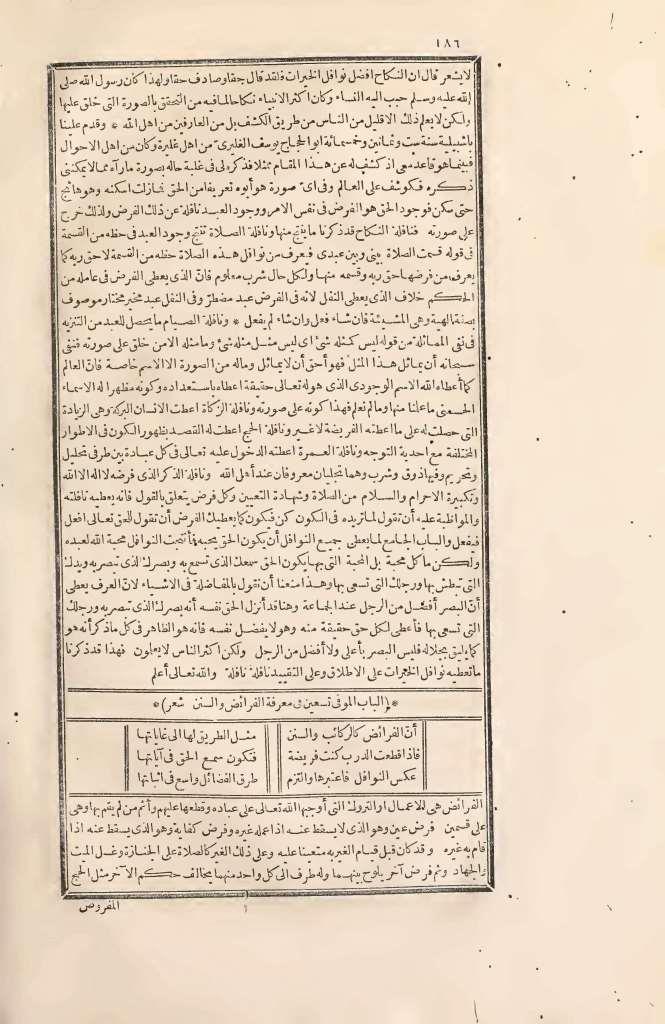 ١٨٦
لا يشعر قال ان النكاح افضل نوافل الخيرات فلقد قال حقا وصادف حقا ولهذا كان رسول الله صلى
الله عليه وسلم حبب اليه النساء وكان أكثر الانبياء نكاحا لما فيه من التحقق بالصورة التى خلق عليها
ولكن لا يعلم ذلك الا قليل من الناس من طريق الكشف بل من العارفين من اهل الله * وقدم علينا
باشبيلية سنة ست وثمانين وخمسمائة ابو الحجاج يوسف الغليرى من اهل غليرة وكان من اهل الاحوال
فبينما هو قاعد معى اذ كشف له عن هذا المقام ممثلا فذكره لى فى غلبة حاله بصورة ما رآه مما لا يمكننى
ذكره فكوشف على العالم وفى اىّ صورة هو أبوه تعريفا من الحق فما زلت اسكنه وهو هائج
حتى سكن فوجود الحق هو الفرض فى نفس الامر ووجود العبد نافلة عن ذلك الفرض ولذلك خرج
على صورته فنافلة النكاح قد ذكرنا ما ينتج منها ونافلة الصلاة تنتج وجود العبد فى حظه من القسمة
فى قوله قسمت الصلاة بينى وبين عبدى فيعرف من نوافل هذه الصلاة حظه من القسمة لا حق ربه كما
يعرف من فرضها حق ربه وقسمه منها ولكل حال شرب معلوم فانّ الذى يعطى الفرض فى عامله من
الحكم خلاف الذى يعطى النفل لانه فى الفرض عبد مضطرّ وفى النفل عبد مخير مختار موصوف
بصفة الهية وهى المشيئة فان شاء فعل وان شاء لم يفعل * ونافلة الصيام ما يحصل للعبد من التنزيه
فى نفى المماثلة من قوله ليس كمثله شئ اى ليس مثل مثله شئ وما مثله الا من خلق على صورته فنفى
سبحانه أن يماثل هذا المثل فهو أحق أن لا يماثل وماله من الصورة الا الاسم خاصة فانّ العالم
كما أعطاه الله الاسم الوجودى الذى هو له تعالى حقيقة اعطاه باستعداده وكونه مظهرا له الاسماء
الحسنى ما علمنا منها وما لم نعلم فهذا كونه على صورته ونافلة الزكاة اعطت الانسان البركة وهى الزيادة
التى حصلت له على ما اعطته الفريضة لا غير ونافلة الحج اعطت له القصد بظهور الكون فى الاطوار
المختلفة مع احدية التوجه ونافلة العمرة اعطته الدخول عليه تعالى فى كل عبادة بين طرفى تحليل
وتحريم وفيها ذوق وشرب وهما تجليان معروفان عند أهل الله ونافلة الذكر الذى فرضه لا اله الا الله
وتكبيرة الاحرام والسلام من الصلاة وشهادة التعيين وكل فرض يتعلق بالقول فانه يعطيه نافلته
والمواظبة عليه أن تقول لما تريده فى الكون كن فيكون كما يعطيك الفرض أن تقول للحق تعالى افعل
فيفعل والباب الجامع لما يعطى جميع النوافل أن يكون الحق يحبه فأنتجت النوافل محبة الله لعبده
ولكن ما كل محبة بل المحبة التى بها يكون الحق سمعك الذى تسمع به وبصرك الذى تبصر به ويدك
التى تبطش بها ورجلك التى تسعى بها وهذا منعنا أن نقول بالمفاضلة فى الاشياء لانّ العرف يعطى
أنّ البصر أفضل من الرجل عند الجماعة وهنا قد أنزل الحق نفسه أنه بصرك الذى تبصر به ورجلك
التى تسعى بها فأعطى لكل حق حقيقة منه وهو لا يفضل نفسه فانه هو الظاهر فى كل ما ذكر أنه هو
كما يليق بجلاله فليس البصر بأعلى ولا أفضل من الرجل ولكن اكثر الناس لا يعلمون فهذا قد ذكرنا
ما تعطيه نوافل الخيرات على الاطلاق وعلى التقييد نافلة نافلة والله تعالى أعلم
*(الباب الموفى تسعين فى معرفة الفرائض والسنن شعر)*
أنّ الفرائض كالركائب والسنن مثل الطريق لها الى غاياتها
فاذا قطعت الدرب كنت فريضة فتكون سمع الحق فى آياتها
عكس النوافل فاعتبرها والتزم طرق الفضائل واسع فى اثباتها
الفرائض هى الاعمال او التروك التى أوجبها الله تعالى على عباده وقطعها عليهم وأثم من لم يقم بها وهى
على قسمين فرض عين وهو الذى لا يسقط عنه اذا عمله غيره وفرض كفاية وهو الذى يسقط عنه اذا
قام به غيره وقد كان قبل قيام الغير به متعينا عليه وعلى ذلك الغير كالصلاة على الجنازة وغسل الميت
والجهاد وثم فرض آخر يلوح بينهما وله طرف الى كل واحد منهما يخالف حكم الآخر مثل الحج
المفروض